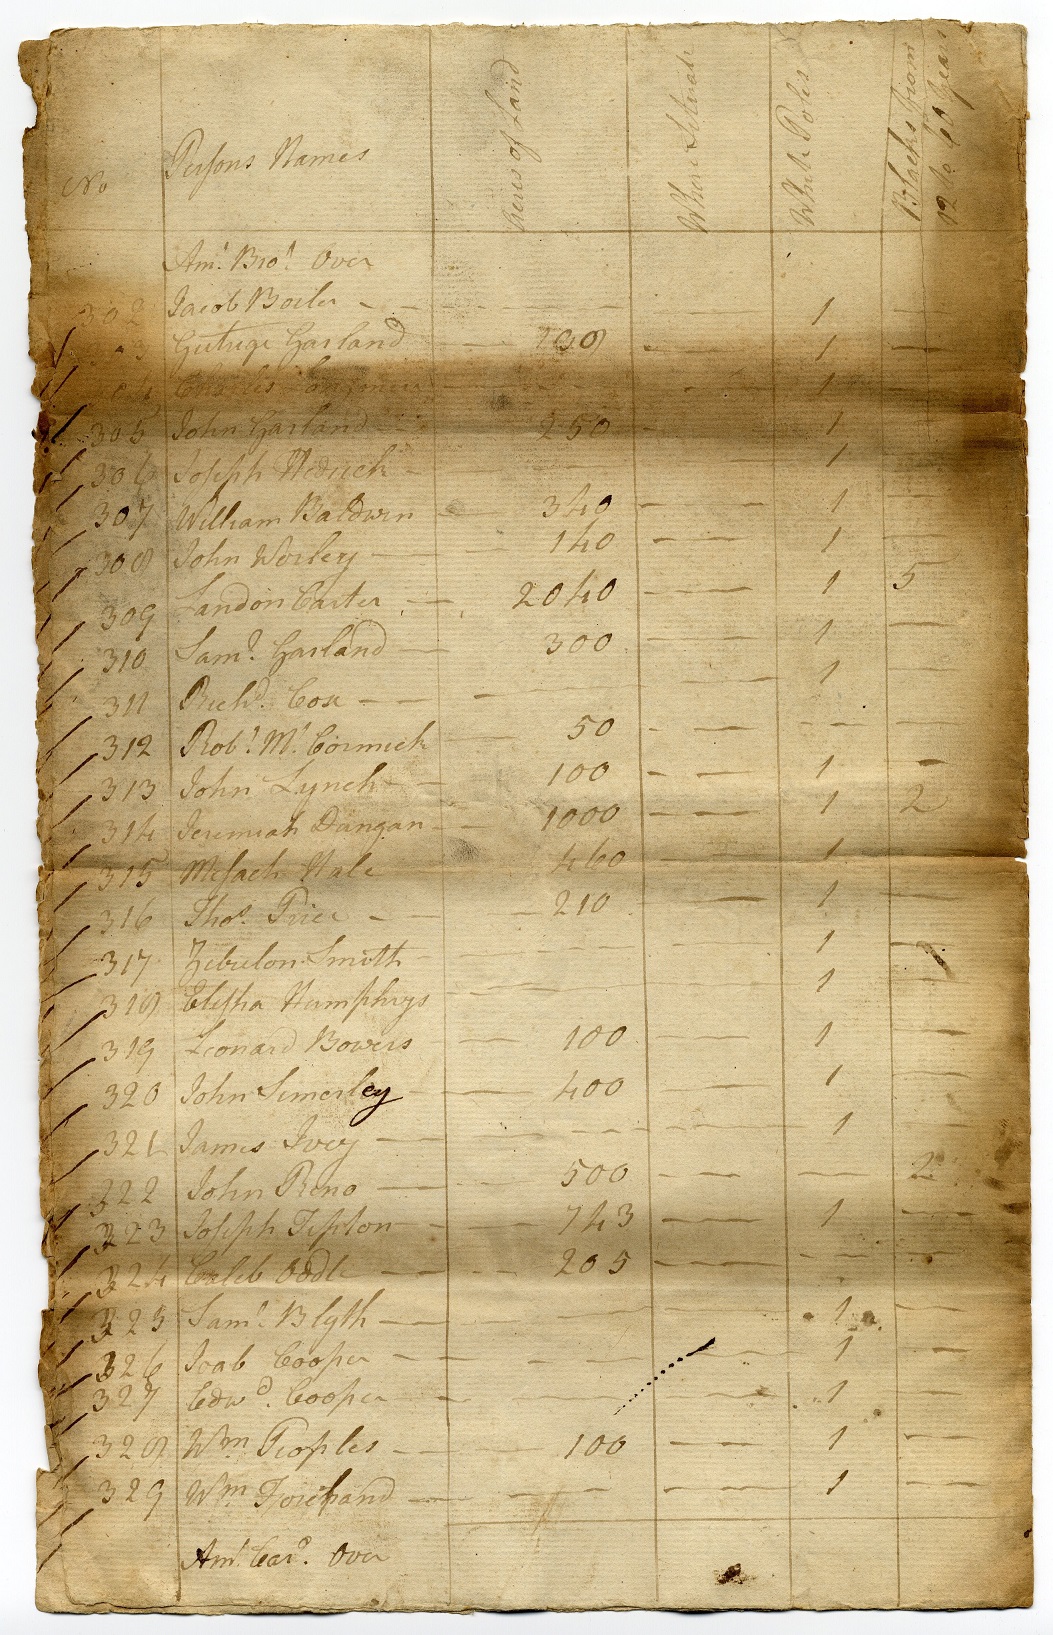 No Persons Names Acres of Land Where Situate White Poles Blacks from 12 to 60 Years
Amt. Brot. Over
302 Jacob Boiler - - - - - - 1 -
Gutridge Garland - 100 - - 1 -
Charles - - - 1 -
305 John Garland - 250 - 1
306 Joseph Hedrick - - - 1
307 William Baldwin - 340 - - 1 -
308 John Worley - - 140 - - 1 -
309 Landon Carter - 2040 - - 1 5
310 Saml. Garland - 300 - - 1 -
311 Richd. Cox - - - - - 1 -
312 Robt. Mc. Cormick - 50 - - - - -
313 John Lynch - 100 - - 1 -
314 Jeremiah Dungan - 1000 - - 1 2
315 Mesach Hale 460 - - 1
316 Thos. Price - - 210 - 1 -
317 Zebulon Smith - - - - 1 -
318 Elisha Humphrys - - - 1 -
319 Leonard Bowers - - 100 - - 1 -
320 John Simerley - - 400 - - 1 -
321 James Ivey - - - - 1 -
322 John Reno - - 500 - - - 2
323 Joseph Tipton - - 743 - - 1 -
324 Caleb Odle - - - 205 - - - - -
325 Saml. Blyth - - - - 1 -
326 Joab Cooper - - - - 1 -
327 Edwd. Cooper - - - - 1 -
328 Wm. Peoples - - 100 - - 1 -
329 Wm. - - - - - 1 -
Amt. Card. Over